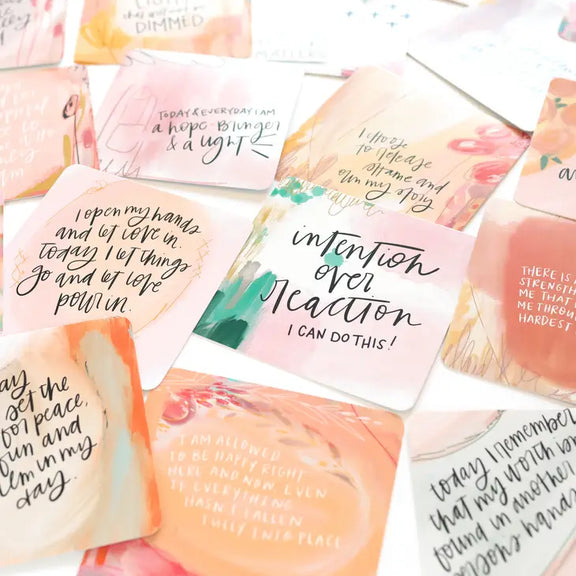 LIGHT
DIMMED
TODAY & EVERYDAY I AM
a hope-Bringer
& a light
I choose
to release
shame and
own my story
I open my hands
and let love in.
Today I let things
go and let love
pour in.
intention
over
reaction
I CAN DO THIS!
THERE IS
STRENGTH
ME THAT
ME THROUGH
HARDEST
set the
for peace,
fun and
in my
day.
I AM ALLOWED
TO BE HAPPY RIGHT
HERE AND NOW. EVEN
IF EVERYTHING
HASN'T FALLEN
FULLY INTO PLACE.
today I remember
that my worth isn
found in another
persons hands